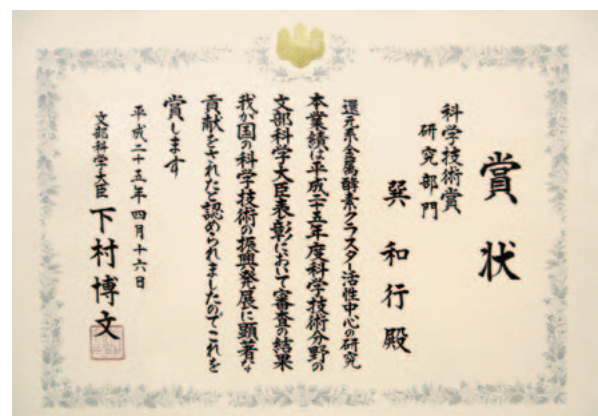 賞状
科学技術賞
研究部門
巽和行殿
還元系金属酵素クラスター活性中心の研究
本業績は平成二十五年度科学技術分野の
文部科学大臣表彰において審査の結果
我が国の科学技術の振興発展に顕著な
貢献をされたと認められましたのでこれを
賞します
平成二十五年四月十六日
文部科学大臣 下村博文